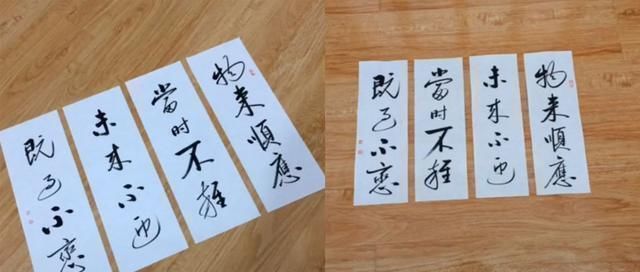 物来順應
當时不雜
未来不迎
既过不戀
物来順應
未来不迎
當时不雜
既过不戀